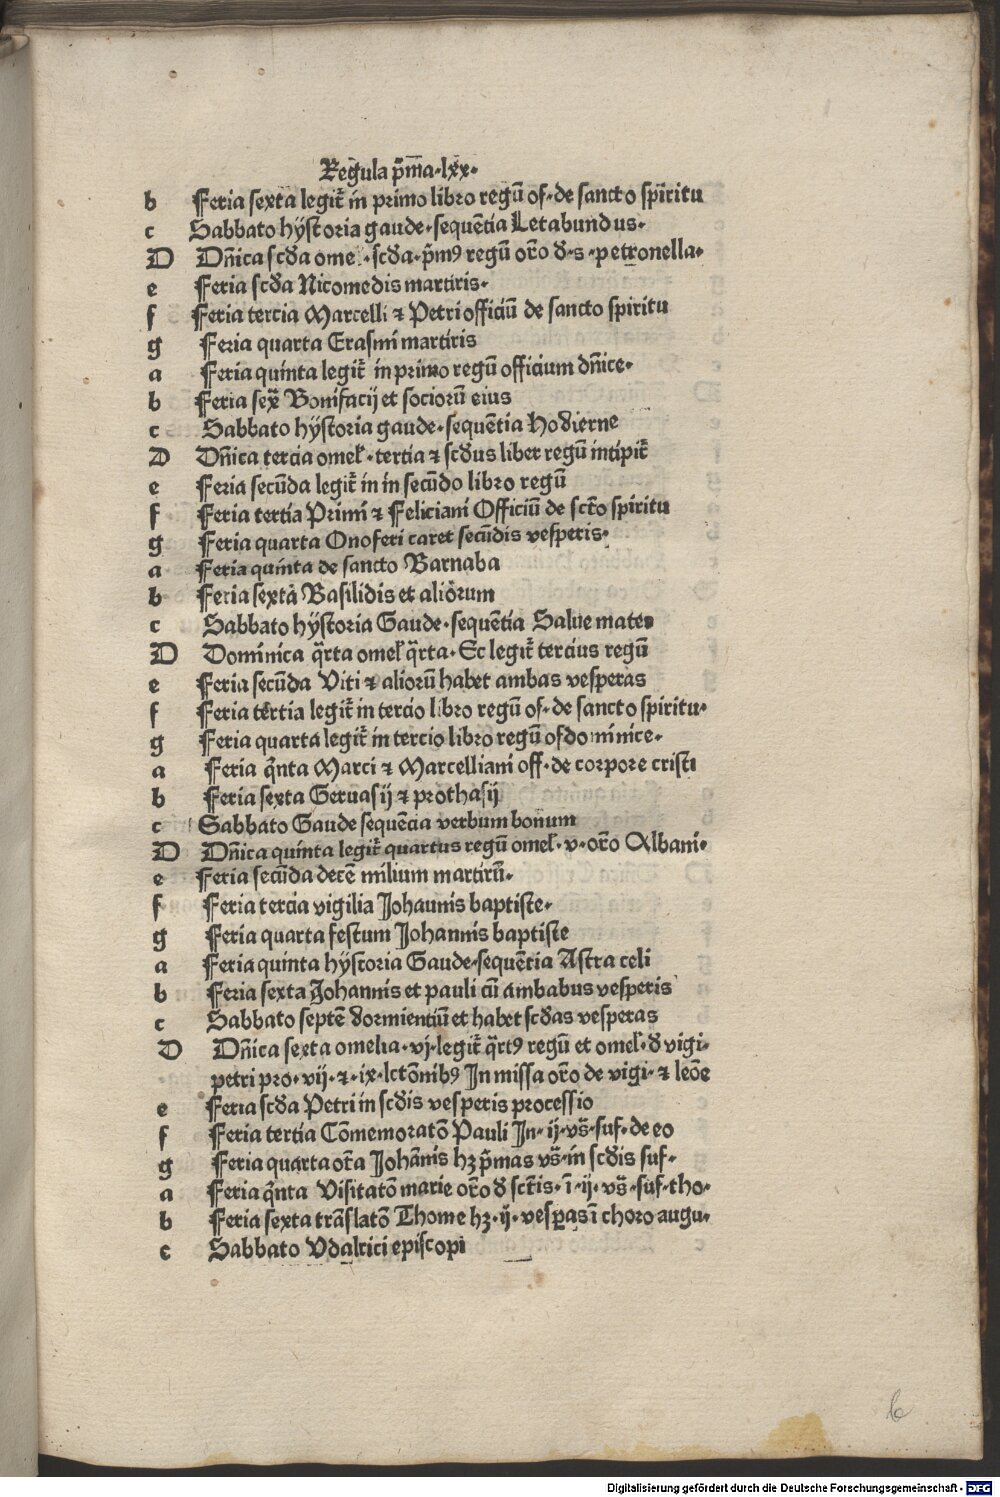 Regula p̄ma·lxx·
b Feria sexta legit᷑ in primo libro regū of·de sancto spiritu
c Sabbato hÿstoria gaude·sequētia Letabundus·
D Dñica scďa omel·scďa·p̄mꝰ regū orō d·s·petronella·
e Feria scďa Nicomedis martiris·
f Feria tercia Marcelli ⁊ Petri officiū de sancto spiritu
g Feria quarta Erasmi martiris
a Feria quinta legit᷑ in primo regū officium dñice·
b Feria sex̄ Bonifacij et sociorū eius
c Sabbato hÿstoria gaude·sequētia Hodierne
D Dñica tercia omel·tertia ⁊ scďus liber regū intipit᷑
e Feria secūda legit᷑ in in secūdo libro regū
f Feria tertia Primi ⁊ Feliciani Officiū de sctō spiritu
g Feria quarta Onoferi caret secūdis vesperis·
a Feria quinta de sancto Barnaba
b Feria sexta Basilidis et aliorum
c Sabbato hÿstoria Gaude·sequētia Salue mater
D Dominica q̄rta omel q̄rta·Et legit᷑ tercius regū
e Feria secūda Viti ⁊ aliorū habet ambas vesperas
f Feria tertia legit᷑ in tercio libro regū of·de sancto spiritu·
g Feria quarta legit᷑ in tercio libro regū of dominice·
a Feria q̄nta Marci ⁊ Marcelliani off·de corpore cristi
b Feria sexta Geruasij ⁊ prothasij
c Sabbato Gaude sequētia verbum bonum
D Dñica quinta legit᷑ quartus regū omel·v·orō Albani·
e Feria secūda decē milium martirū·
f Feria tercia vigilia Johannis baptiste·
g Feria quarta festum Johannis baptiste
a Feria quinta hÿstoria Gaude·sequētia Astra celi
b Feria sexta Johannis et pauli cū ambabus vesperis
c Sabbato septē dormientiū et habet scďas vesperas
D Dñica sexta omelia·vj·legit᷑ q̄rtꝰ regū et omel·d vigi·
petri pro·vij·⁊·ix·lctōnibꝰ In missa orō de vigi·⁊ leōe
e Feria scďa Petri in scďis vesperis processio
f Feria tertia Cōmemoratō Pauli In·ij·vs̄·suf·de eo
g Feria quarta octa Johānis hꝫ p̄mas vs̄·in scďis suf·
a Feria q̄nta Visitatō marie orō d sctīs·ī·ij·vs̄·suf·tho·
b Feria sexta trāslatō Thome hꝫ·ij·vesperas ī choro augu·
c Sabbato Vdalrici episcopi
b
Digitalisierung gefördert durch die Deutsche Forschungsgemeinschaft - DFG